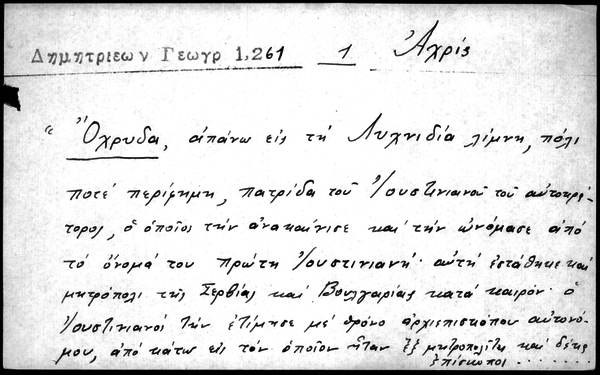 Δημητριεων Γεωγρ 1,261 1 Ἀχρίς
"Ὄχρυδα, ἀπάνω εἰς τὴ Λυχνιδία λίμνη, πόλι
ποτέ περίφημη, πατρίδα τοῦ Ἰουστινιανοῦ τοῦ αὐτοκρά-
τορος, ὁ ὁποῖος τὴν ἀνακαίνισε καὶ τὴν ὠνόμασε ἀπό
τὸ ὄνομά του πρώτη Ἰουστινιανή· αὐτή ἐστάθηκε καί
μητρόπολι τῆς Σερβίας καί Βουλγαρίας κατά καιρόν· ὁ
Ἰουστινιανός τὴν ἐτίμησε μέ θρόνο ἀρχιεπισκόπου αὐτονό-
μου, ἀπό κάτω εἰς τόν ὁποῖον ἦταν ἕξ μητροπολῖται καί δέκα
ἐπίσκοποι . . . . . .